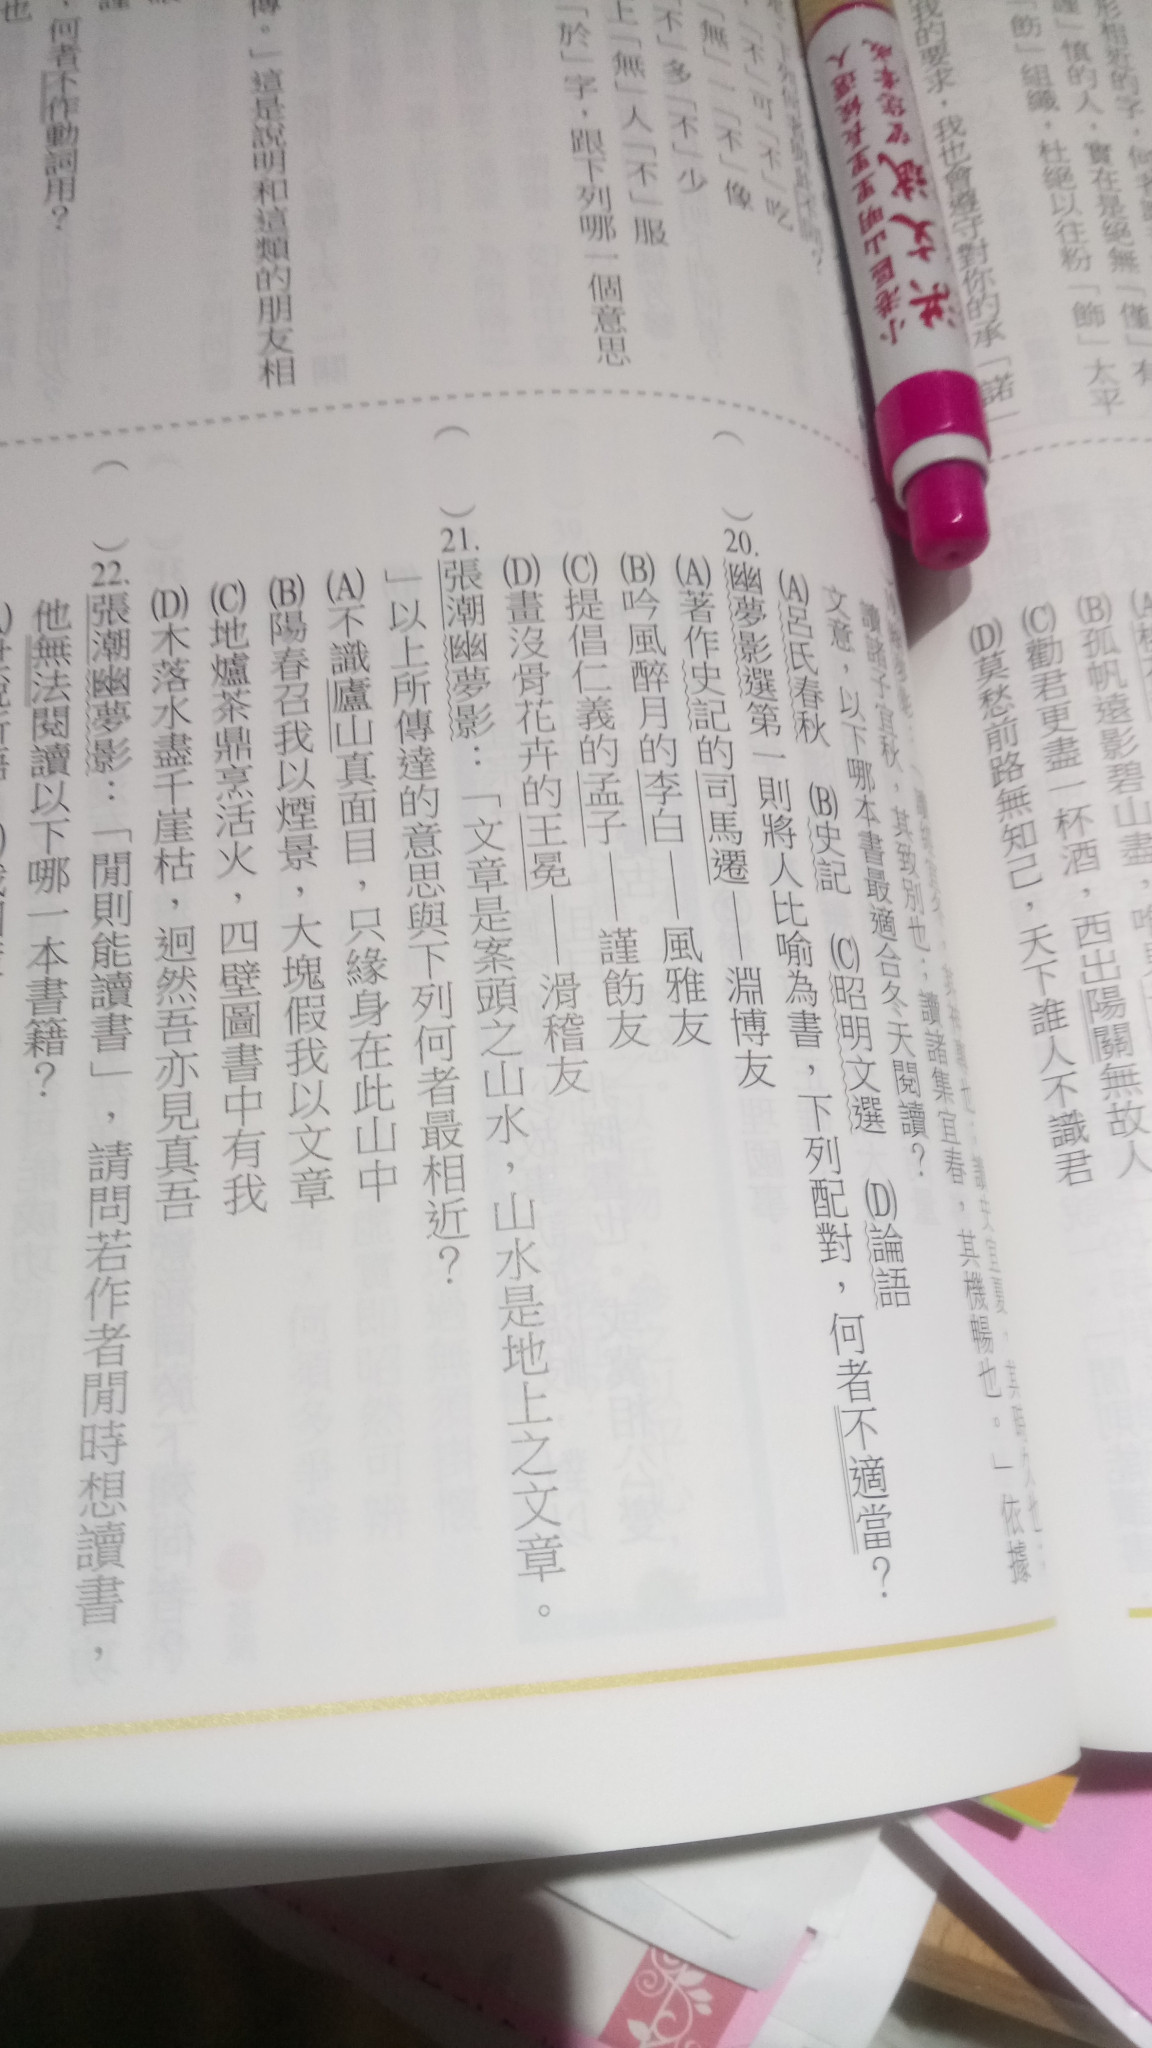 形相近的字，何者
謹」慎的人，實在是絕無「僅」有
「飭」組織，杜絕以往粉「飾」太平
我的要求，我也會遵守對你的承「諾」
(B)孤帆遠影碧山盡，唯見
(C)勸君更盡一杯酒，西出陽關無故人
(D)莫愁前路無知己，天下誰人不識君
小港區山明里里長候選人
洪文斌
「不」可「不」吃
「無」一「不」像
「不」多「不」少
上「無」人「不」服
「於」字，跟下列哪一個意思
傳。」這是說明和這類的朋友相
，何者不作動詞用？
也
讀諸子宜秋，其致別也；讀諸集宜春，其機暢也。」依據
文意，以下哪本書最適合冬天閱讀？
(A)呂氏春秋 (B)史記 (C)昭明文選 (D)論語
( )20.幽夢影選第一則將人比喻為書，下列配對，何者不適當？
(A)著作史記的司馬遷——淵博友
(B)吟風醉月的李白——風雅友
(C)提倡仁義的孟子——謹飭友
(D)畫沒骨花卉的王冕——滑稽友
( )21.張潮幽夢影：「文章是案頭之山水，山水是地上之文章。
」以上所傳達的意思與下列何者最相近？
(A)不識廬山真面目，只緣身在此山中
(B)陽春召我以煙景，大塊假我以文章
(C)地爐茶鼎烹活火，四壁圖書中有我
(D)木落水盡千崖枯，迥然吾亦見真吾
( )22.張潮幽夢影：「閒則能讀書」，請問若作者閒時想讀書，
他無法閱讀以下哪一本書籍？